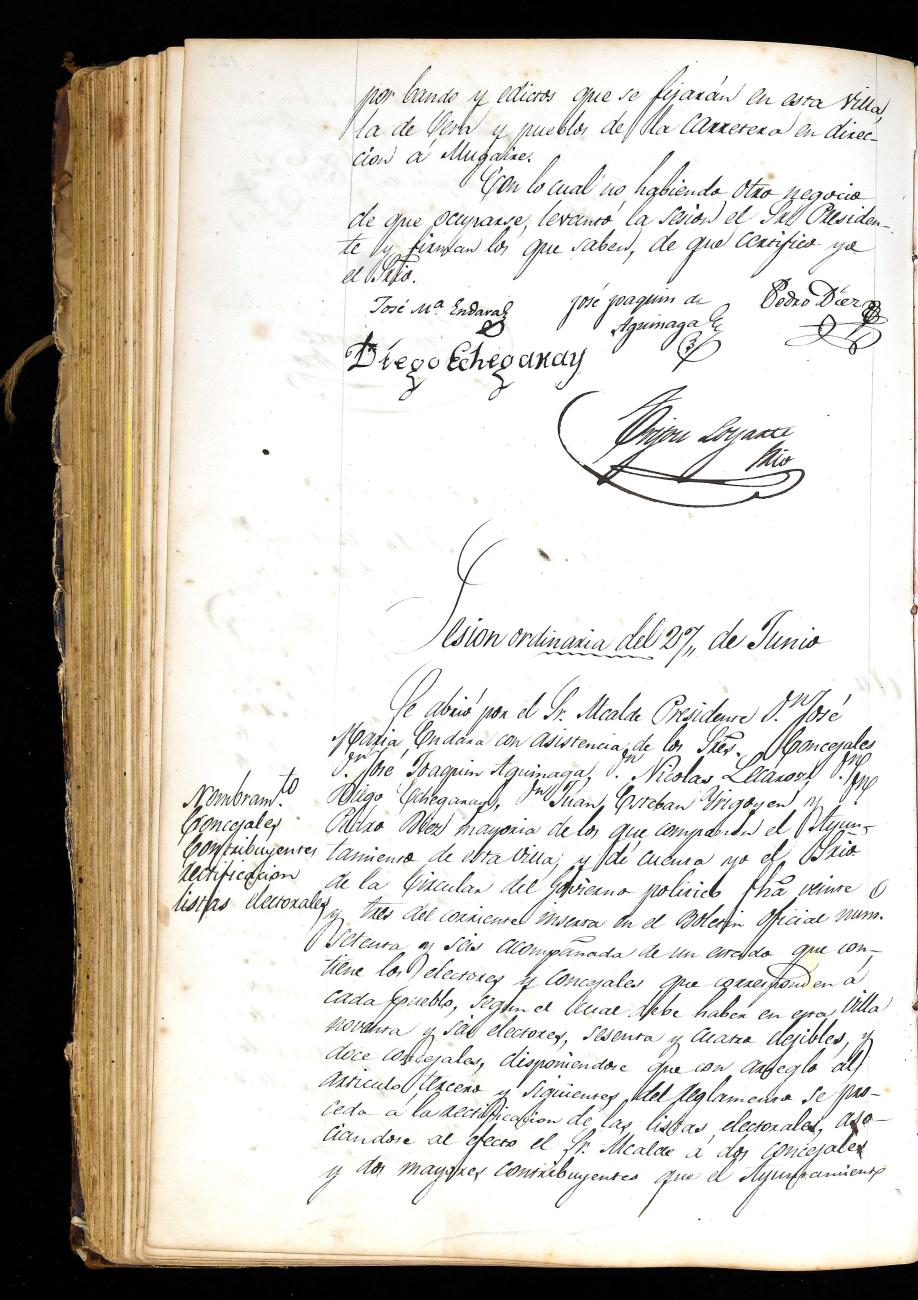 por bando y edictos que se fijarán en esta Villa,
la de Vera y pueblos de la carretera en direc-
cion á Mugaire.
Con lo cual no habiendo otro negocio
de que ocuparse, levantó la sesion el Sr. Presiden-
te y firman los que saben, de que certifico yo
el Srio.
José Mª Endara
José Joaquin de
Aguinaga
Pedro Diez
Diego Echegaray
Loyarte
Srio
Sesion ordinaria del 27,, de Junio
Se abrió por el Sr. Alcalde Presidente D.n José
Maria Endara con asistencia de los Sres. Concejales
D.n José Joaquin Aguinaga, D.n Nicolas Lecaroz, D.n
Diego Echegaray, D.n Juan Esteban Yrigoyen y D.n
Pedro Diez mayoria de los que componen el Ayun-
tamiento de esta villa, y dí cuenta yo el Srio
de la Circular del Gobierno politico fha veinte
y tres del corriente inserta en el Boletin oficial num.
setenta y seis acompañada de un estado que con-
tiene los electores y concejales que corresponden á
cada pueblo, segun el cual debe haber en esta villa
noventa y seis electores, sesenta y cuatro elejibles, y
doce concejales, disponiendose que con arreglo al
articulo tercero y siguientes del reglamento se pro-
ceda á la rectificacion de las listas electorales, aso-
ciandose al efecto el Sr. Alcalde á dos concejales
y dos mayores contribuyentes que el Ayuntamiento
Nombram.to
Concejales
Contribuyentes
rectificacion
listas electorales